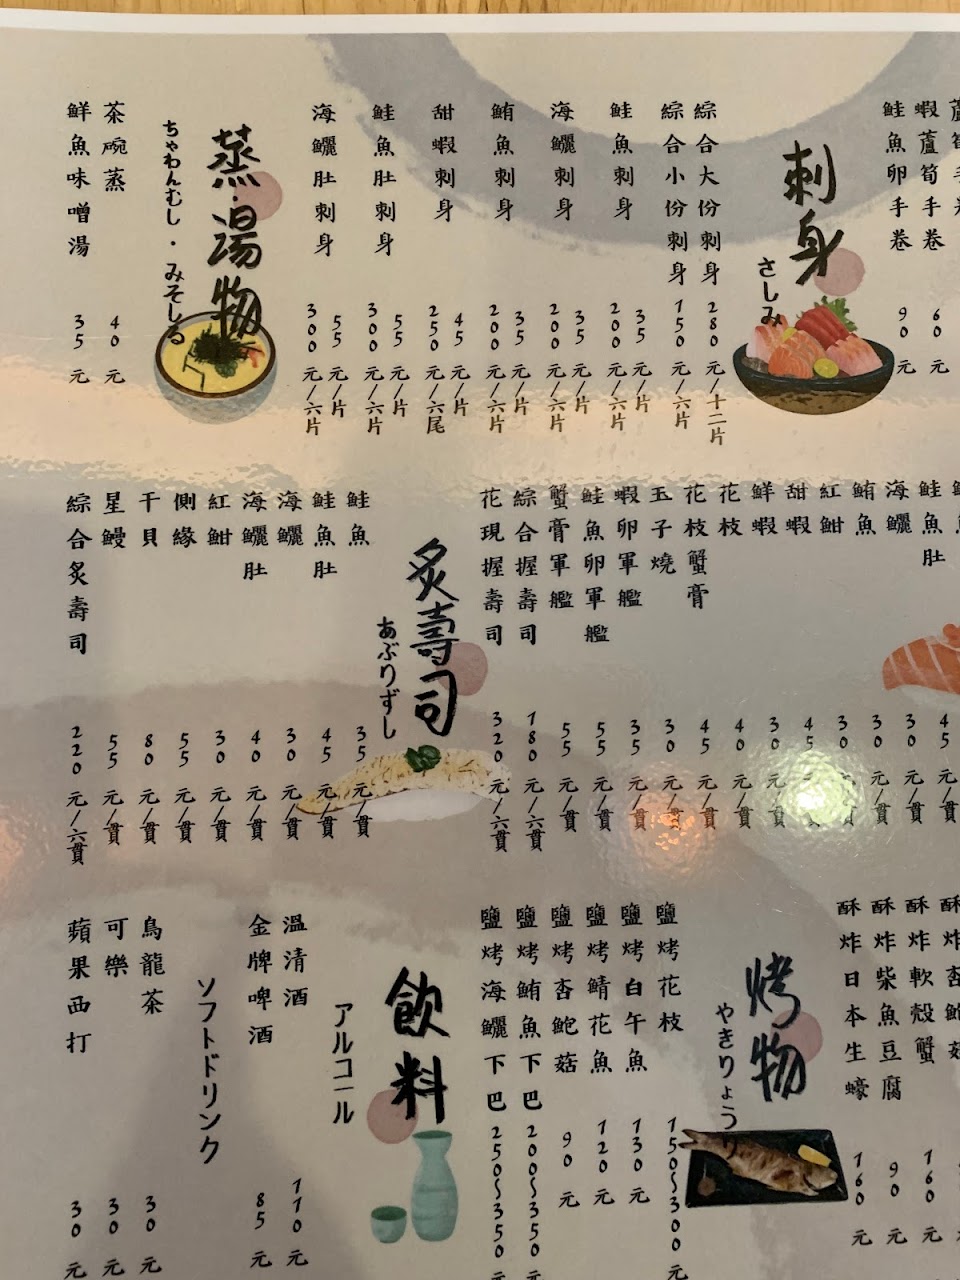 蝦蘆筍手卷 60元
鮭魚卵手卷 90元
刺身
さしみ
綜合大份刺身 280元/十二片
綜合小份刺身 150元/六片
鮭魚刺身 35元/片 200元/六片
海鱺刺身 35元/片 200元/六片
鮪魚刺身 35元/片 200元/六片
甜蝦刺身 45元/片 250元/六尾
鮭魚肚刺身 55元/片 300元/六片
海鱺肚刺身 55元/片 300元/六片
蒸.湯物
ちゃわんむし・みそしる
茶碗蒸 40元
鮮魚味噌湯 35元
鮭魚肚 45元/貫
海鱺 30元/貫
鮪魚 30元/貫
紅魽 30元/貫
甜蝦 45元/貫
鮮蝦 30元/貫
花枝 40元/貫
花枝蟹膏 45元/貫
玉子燒 30元/貫
蝦卵軍艦 35元/貫
鮭魚卵軍艦 55元/貫
蟹膏軍艦 55元/貫
綜合握壽司 180元/六貫
花現握壽司 320元/六貫
炙壽司
あぶりずし
鮭魚 35元/貫
鮭魚肚 45元/貫
海鱺 30元/貫
海鱺肚 40元/貫
紅魽 30元/貫
側緣 55元/貫
干貝 80元/貫
星鰻 55元/貫
綜合炙壽司 220元/六貫
酥炸軟殼蟹 160元
酥炸柴魚豆腐 90元
酥炸日本生蠔 160元
烤物
やきりょうり
鹽烤花枝 150~300元
鹽烤白午魚 130元
鹽烤鯖花魚 120元
鹽烤杏鮑菇 90元
鹽烤鮪魚下巴 200~350元
鹽烤海鱺下巴 250~350元
飲料
アルコール
溫清酒 110元
金牌啤酒 85元
ソフトドリンク
烏龍茶 30元
可樂 30元
蘋果西打 30元